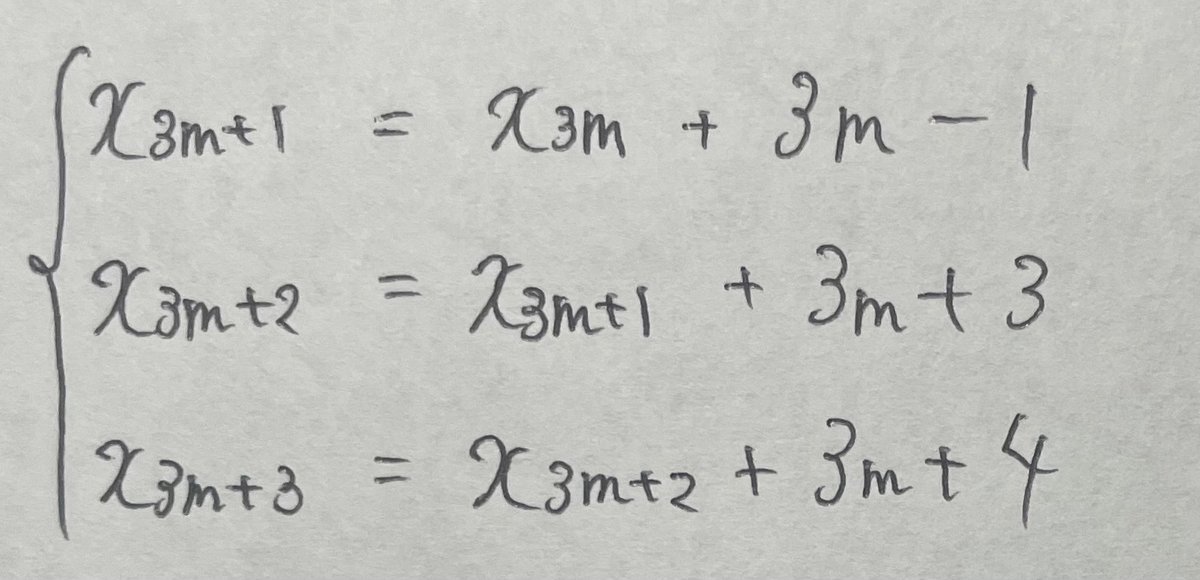 x3m+1 = x3m + 3m - 1
x3m+2 = x3m+1 + 3m + 3
x3m+3 = x3m+2 + 3m + 4